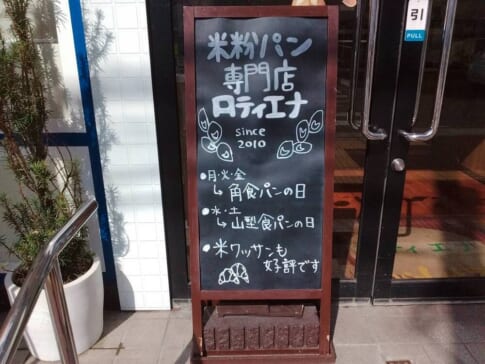 米粉パン
専門店
ロティエナ
since
2010
●月・火・金
↳角食パンの日
●水・土
↳山型食パンの日
●米ワッサンも
好評です
引
PULL
ティエナ